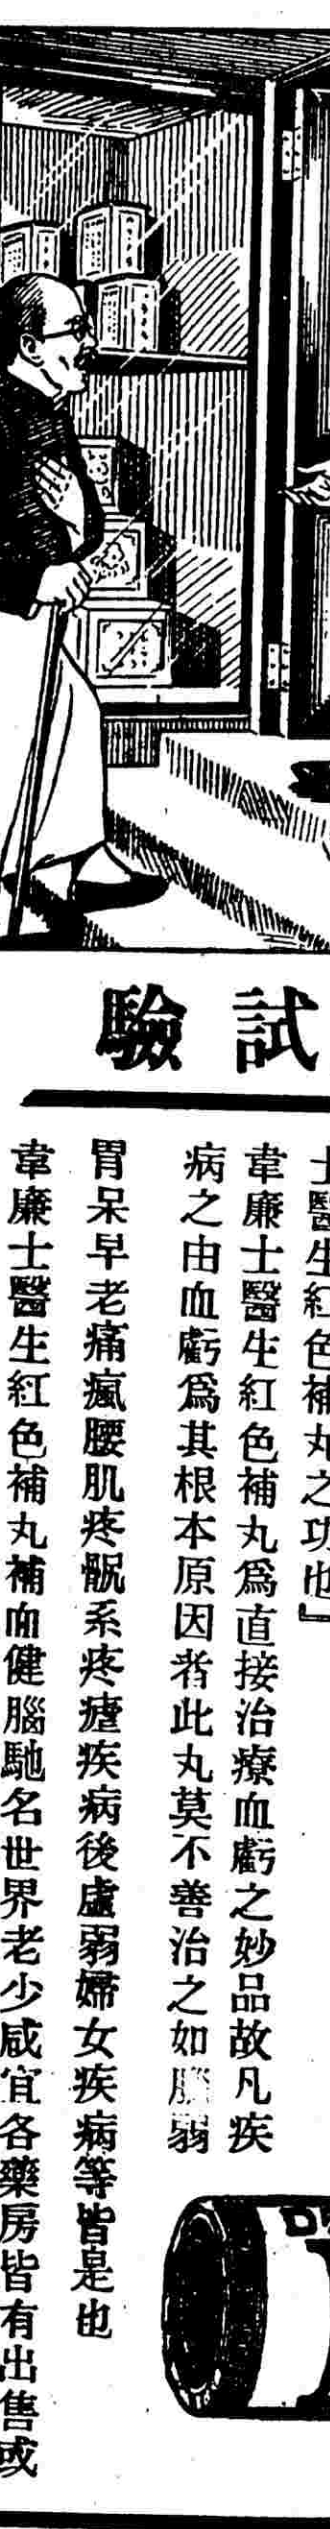 試驗
士醫生紅色補丸之功也』
韋廉士醫生紅色補丸爲直接治療血虧之妙品故凡疾
病之由血虧爲其根本原因者此丸莫不善治之如腦弱
胃呆早老痛瘋腰肌疼骩系疼瘧疾病後虛弱婦女疾病等皆是也
韋廉士醫生紅色補丸補血健腦馳名世界老少咸宜各藥房皆有出售或